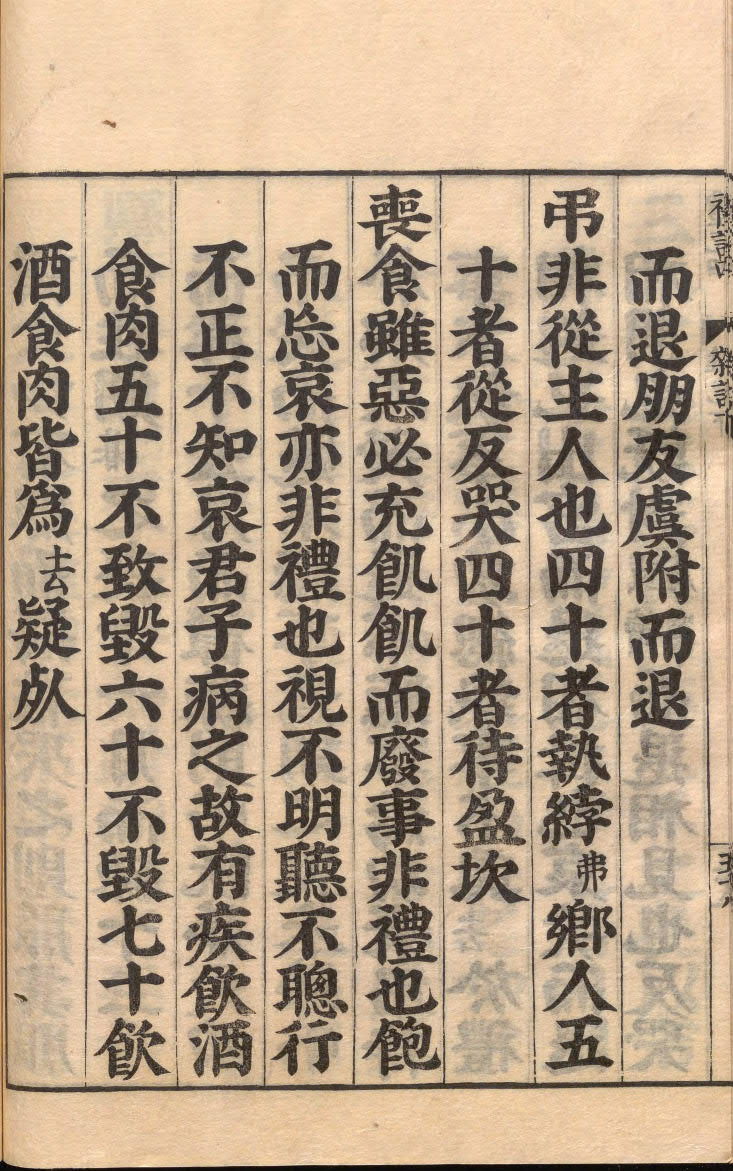 而退朋友虞附而退
弔非從主人也四十者執綍弗鄉人五
十者從反哭四十者待盈坎
喪食雖惡必充飢飢而廢事非禮也飽
而忘哀亦非禮也視不明聽不聰行
不正不知哀君子病之故有疾飲酒
食肉五十不致毀六十不毀七十飲
酒食肉皆爲去疑死